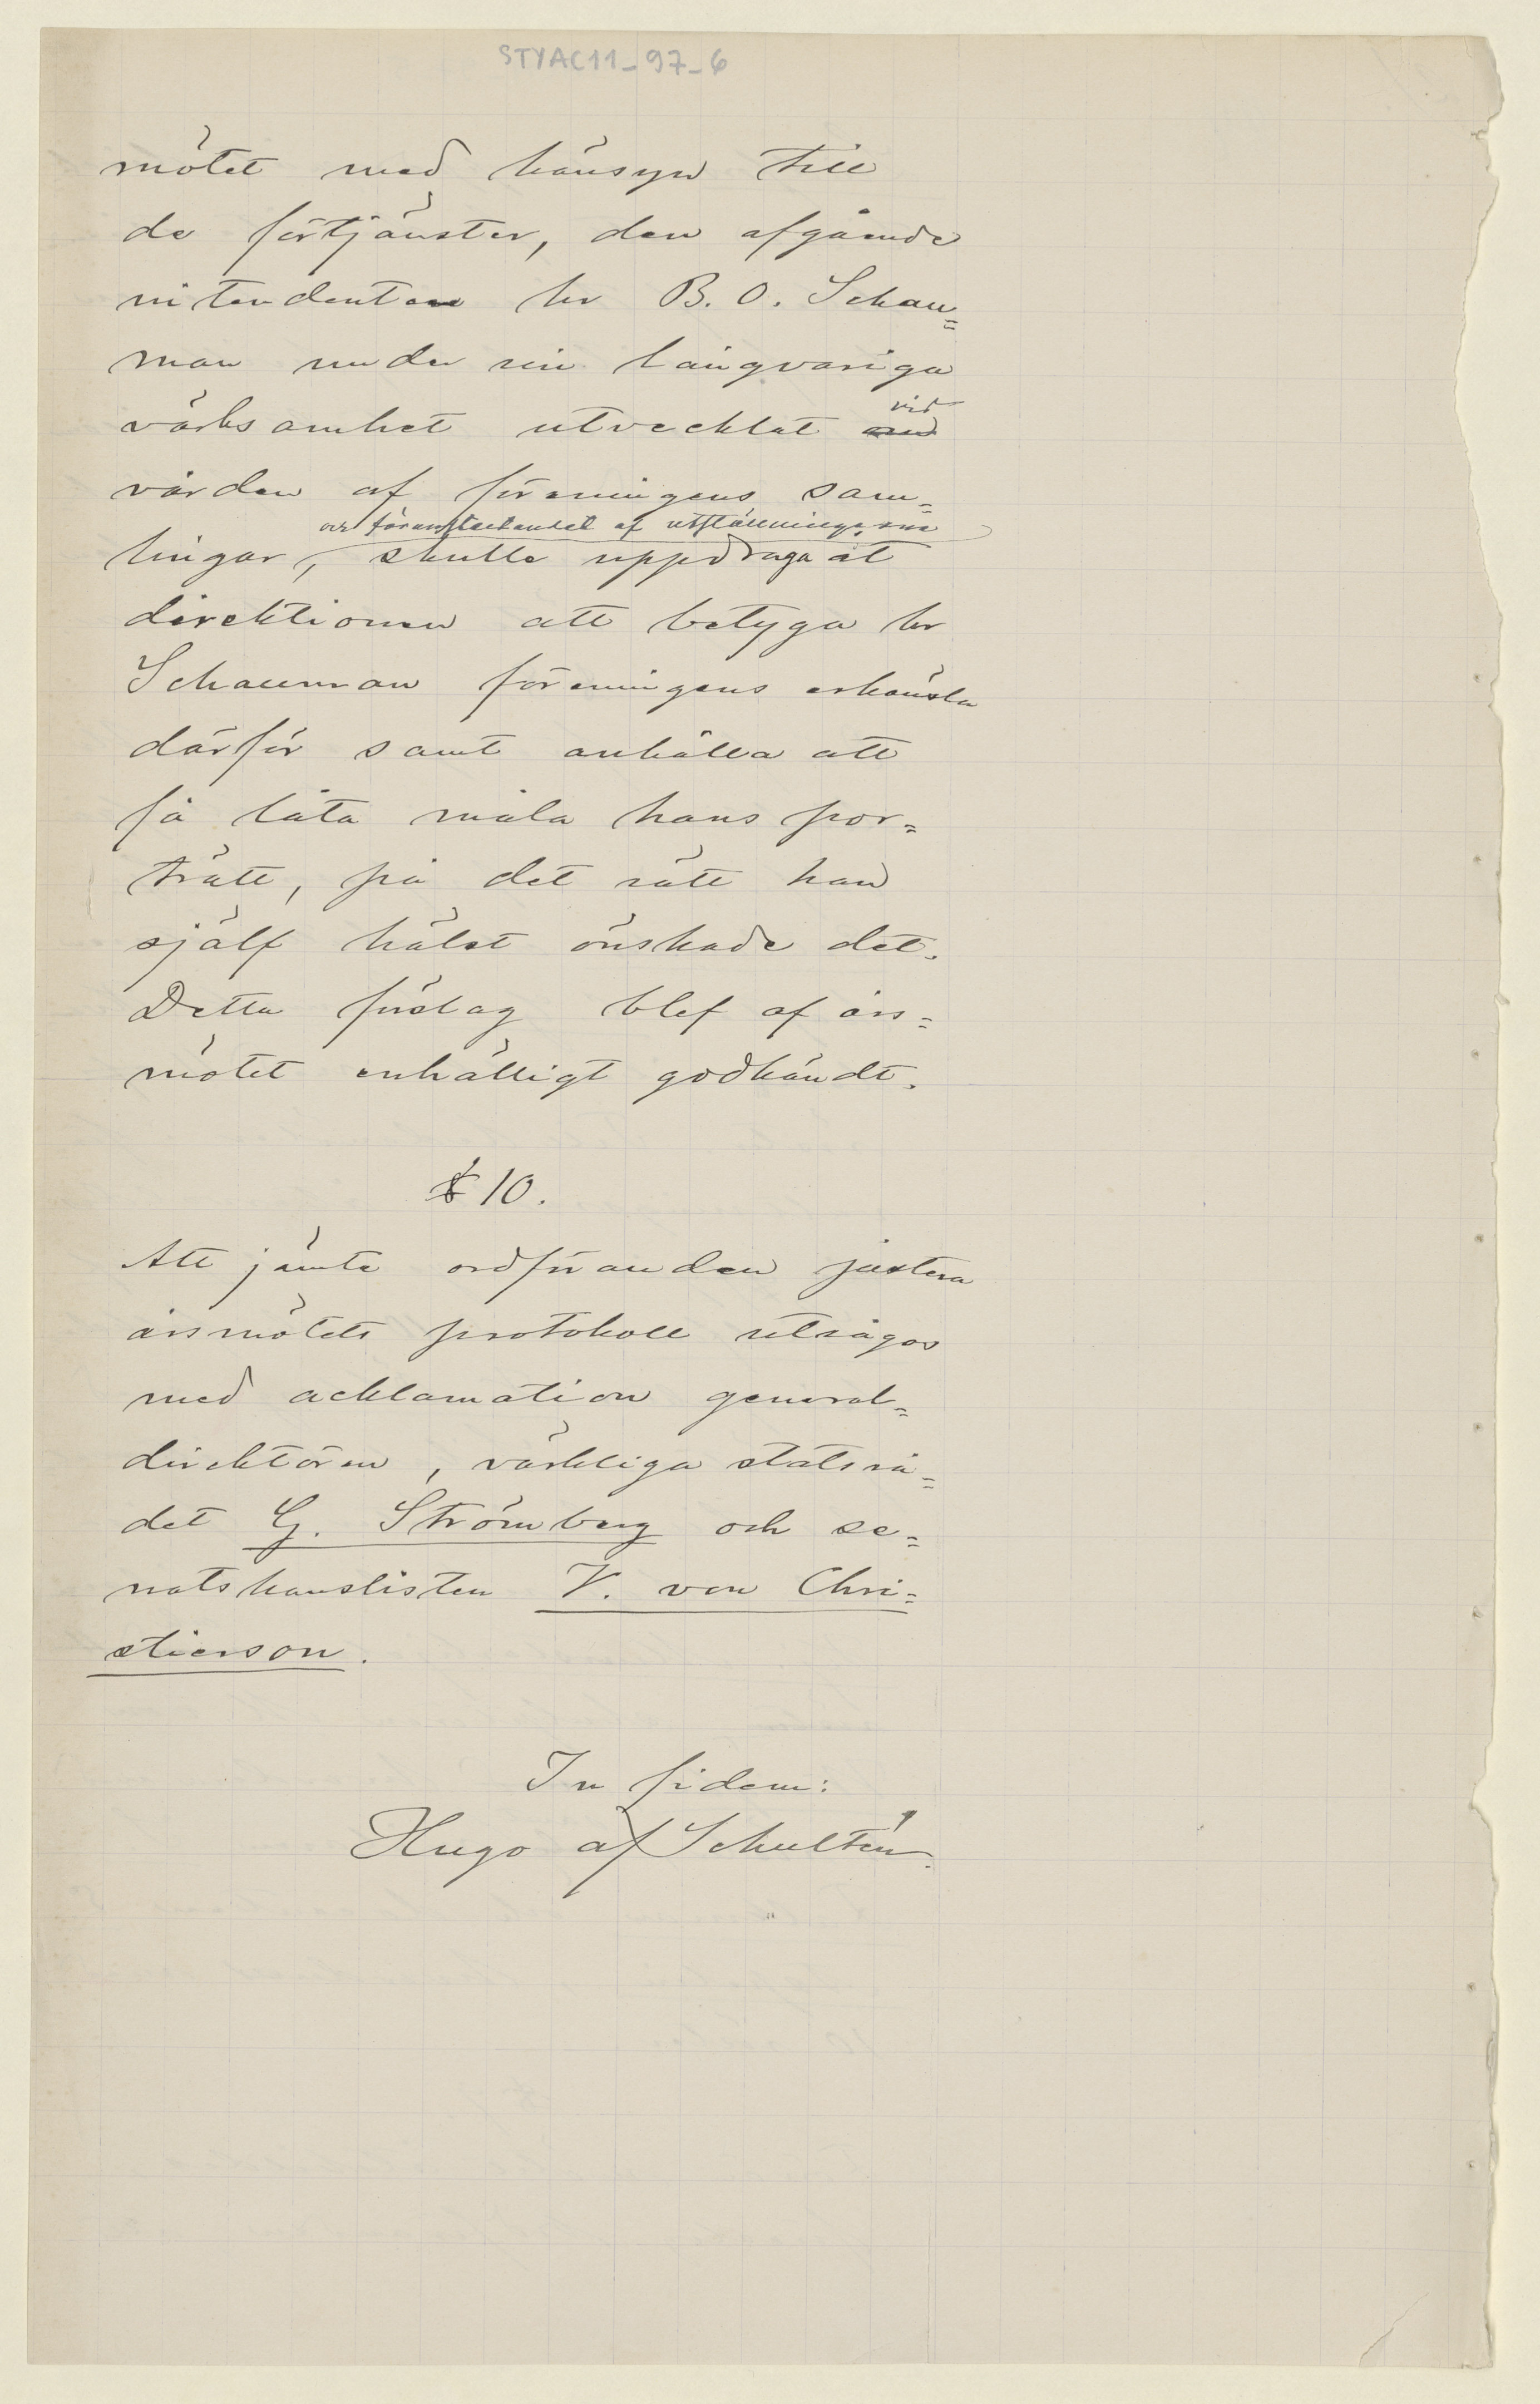 STYAC11_97_6
mötet med hänsyn till
de förtjänster, den afgående
intendenten hr B. O. Schau=
man under sin långvariga
värksamhet utvecklat vid
vården af föreningens sam=
och föranstaltandet af utställningarna
lingar, skulle uppdraga åt
direktionen att betyga hr
Schauman föreningens erkänsla
därför samt anhålla att
få låta måla hans por=
trätt, på det sätt han
själf hälst önskade det.
Detta förslag blef af års=
mötet enhälligt godkändt.
§ 10.
Att jämte ordföranden justera
årsmötets protokoll utsågos
med acklamation general=
direktören, värkliga statsrå=
det G. Strömberg och se=
natskanslisten V. von Chri=
stierson.
In fidem:
Hugo af Schultén.